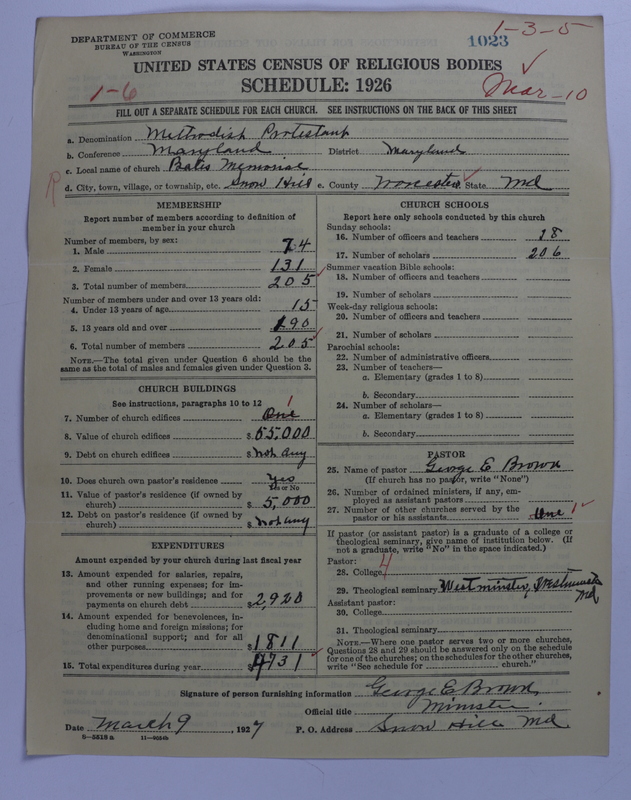 1-3-5
DEPARTMENT OF COMMERCE
BUREAU OF THE CENSUS
WASHINGTON
1023
UNITED STATES CENSUS OF RELIGIOUS BODIES
1-6
SCHEDULE: 1926
Mar-10
FILL OUT A SEPARATE SCHEDULE FOR EACH CHURCH. SEE INSTRUCTIONS ON THE BACK OF THIS SHEET
a. Denomination Methodist Protestant
b. Conference Maryland District Maryland
c. Local name of church Bates Memorial
R
d. City, town, village, or township, etc. Snow Hill e. County Worcester State Md
MEMBERSHIP
Report number of members according to definition of
member in your church
Number of members, by sex:
1. Male 74
2. Female 131
3. Total number of members 205
Number of members under and over 13 years old:
4. Under 13 years of age 15
5. 13 years old and over 190
6. Total number of members 205
NOTE.—The total given under Question 6 should be the
same as the total of males and females given under Question 3.
CHURCH BUILDINGS
See instructions, paragraphs 10 to 12
7. Number of church edifices One 1
8. Value of church edifices $ 55,000
9. Debt on church edifices $ not any
10. Does church own pastor's residence Yes
Yes or No
11. Value of pastor's residence (if owned by
church) $ 5,000
12. Debt on pastor's residence (if owned by
church) $ not any
EXPENDITURES
Amount expended by your church during last fiscal year
13. Amount expended for salaries, repairs,
and other running expenses; for im-
provements or new buildings; and for
payments on church debt $ 2,920
14. Amount expended for benevolences, in-
cluding home and foreign missions; for
denominational support; and for all
other purposes $ 1811
15. Total expenditures during year $ 4731
CHURCH SCHOOLS
Report here only schools conducted by this church
Sunday schools:
16. Number of officers and teachers 18
17. Number of scholars 206
Summer vacation Bible schools:
18. Number of officers and teachers
19. Number of scholars
Week-day religious schools:
20. Number of officers and teachers
21. Number of scholars
Parochial schools:
22. Number of administrative officers
23. Number of teachers—
a. Elementary (grades 1 to 8)
b. Secondary
24. Number of scholars—
a. Elementary (grades 1 to 8)
b. Secondary
PASTOR
25. Name of pastor George E Brown
(If church has no pastor, write "None")
26. Number of ordained ministers, if any, em-
ployed as assistant pastors
27. Number of other churches served by the
pastor or his assistants One 1
If pastor (or assistant pastor) is a graduate of a college or
theological seminary, give name of institution below. (If
not a graduate, write "No" in the space indicated.)
Pastor:
28. College 4
29. Theological seminary Westminster, Westminster
Md
Assistant pastor:
30. College
31. Theological seminary
NOTE.—Where one pastor serves two or more churches,
Questions 28 and 29 should be answered only on the schedule
for one of the churches; on the schedules for the other churches,
write "See schedule for church."
Signature of person furnishing information George E Brown
Official title Minister
Date March 9, 1927 P. O. Address Snow Hill Md